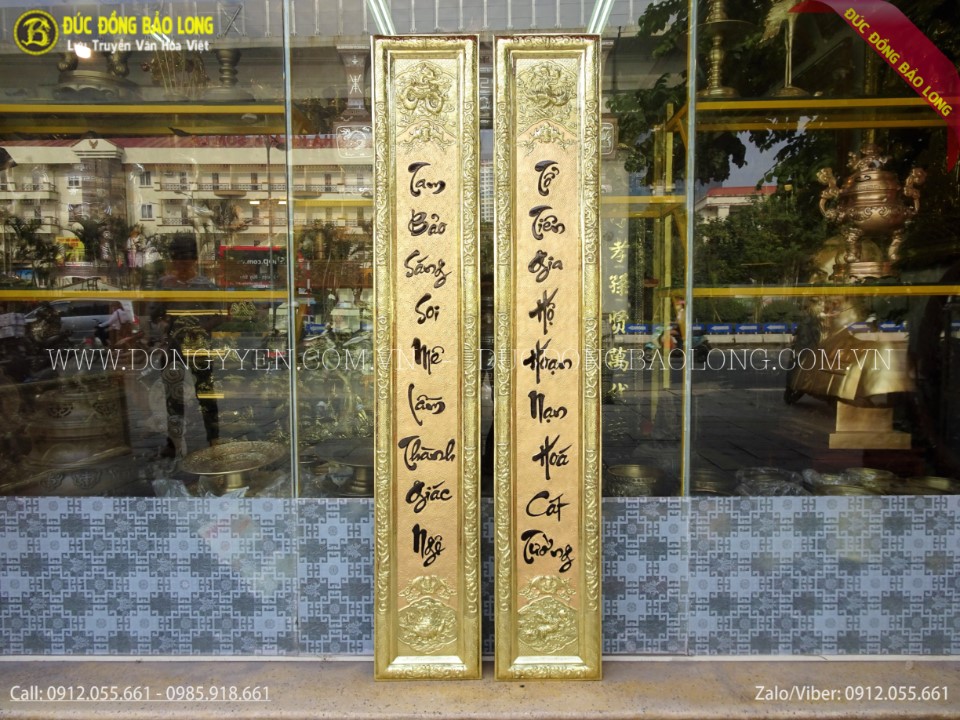 ĐÚC ĐỒNG BẢO LONG
Lưu Truyền Văn Hóa Việt
ĐÚC ĐỒNG BẢO LONG
Tam
Bảo
Sáng
Soi
Mê
Lầm
Thành
Giác
Ngộ
Tổ
Tiên
Gia
Hộ
Hoạn
Nạn
Hoá
Cát
Tường
孝
孫
賢
萬
WWW.DONGYYEN.COM.VN - DUCDONGBAOLONG.COM.VN
Call: 0912.055.661 - 0985.918.661
Zalo/Viber: 0912.055.661